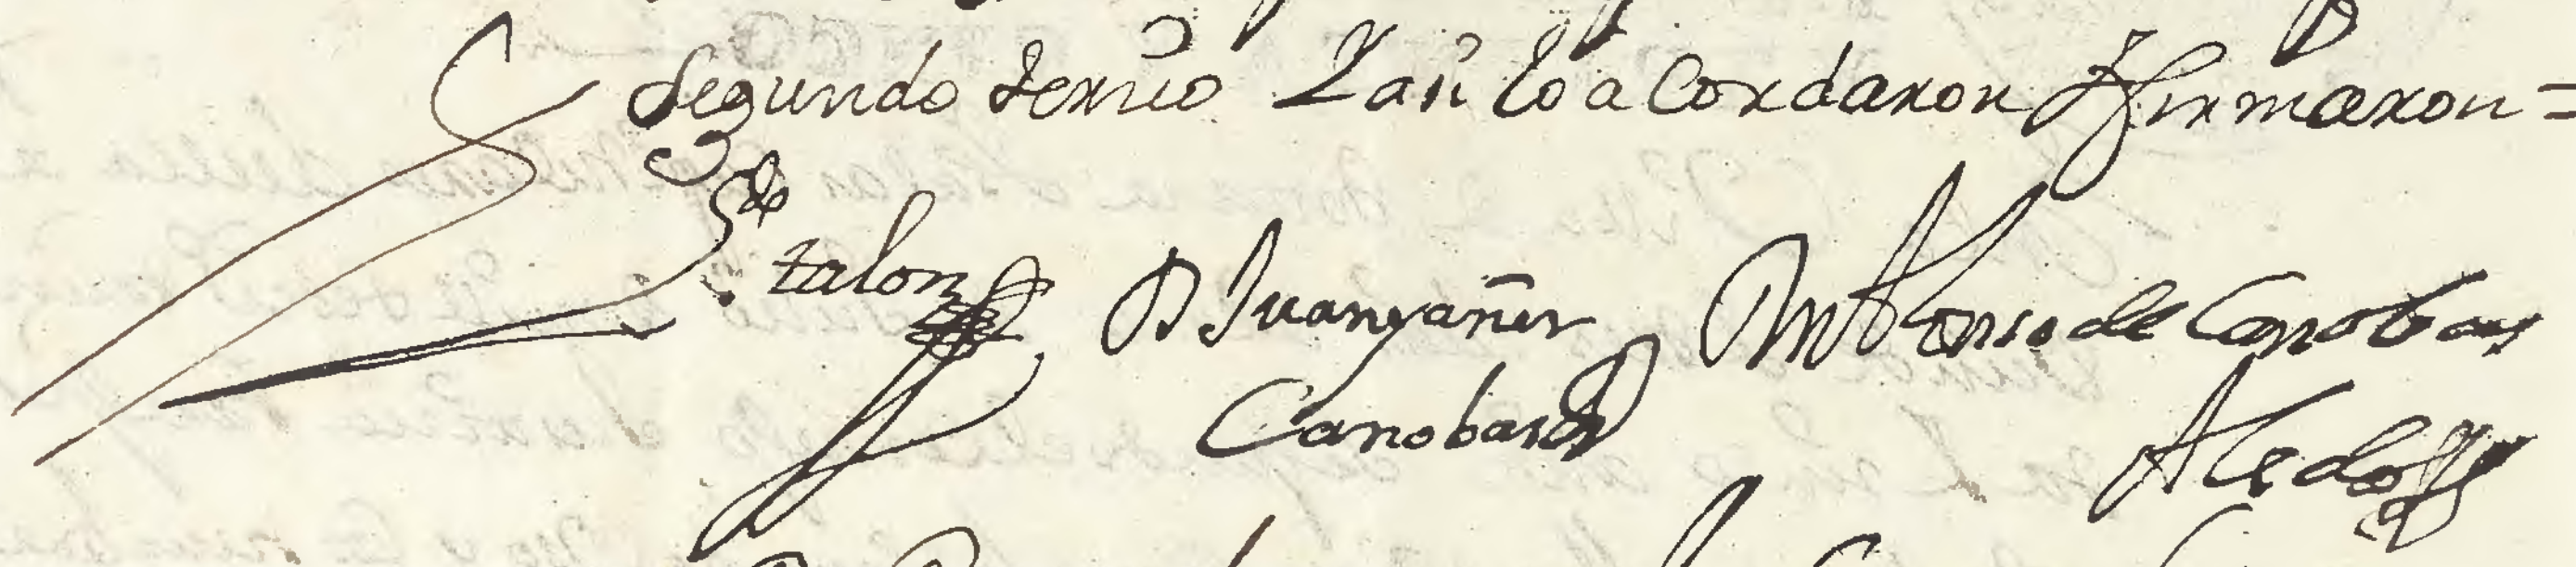 Segundo terño Y asi lo acordaron y firmaron =
talon D Juan yañez Antonio de Canobas
Canobas Aledo